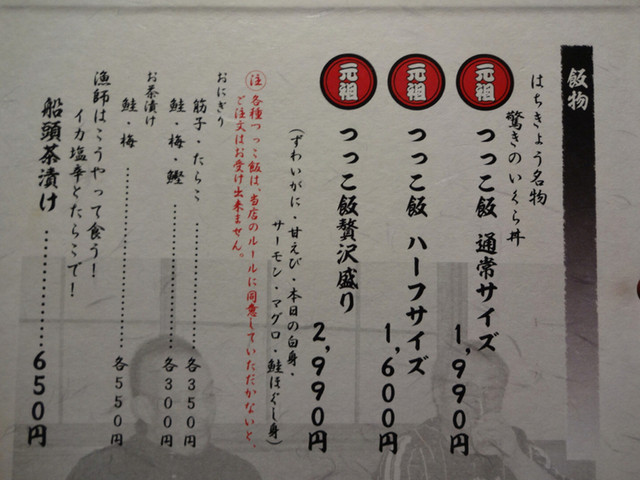 飯物
はちきょう名物
驚きのいくら丼
元祖 つっこ飯 通常サイズ 1,990円
元祖 つっこ飯 ハーフサイズ 1,600円
元祖 つっこ飯贅沢盛り 2,990円
(ずわいがに・甘えび・本日の白身・
サーモン・マグロ・鮭ほぐし身)
注 各種つっこ飯は、当店のルールに同意していただかないと、
ご注文はお受け出来ません。
おにぎり
筋子・たらこ………………各350円
鮭・梅・鰹………………各300円
お茶漬け
鮭・梅………………各550円
漁師はこうやって食う!
イカ塩辛とたらこで!
船頭茶漬け………………650円